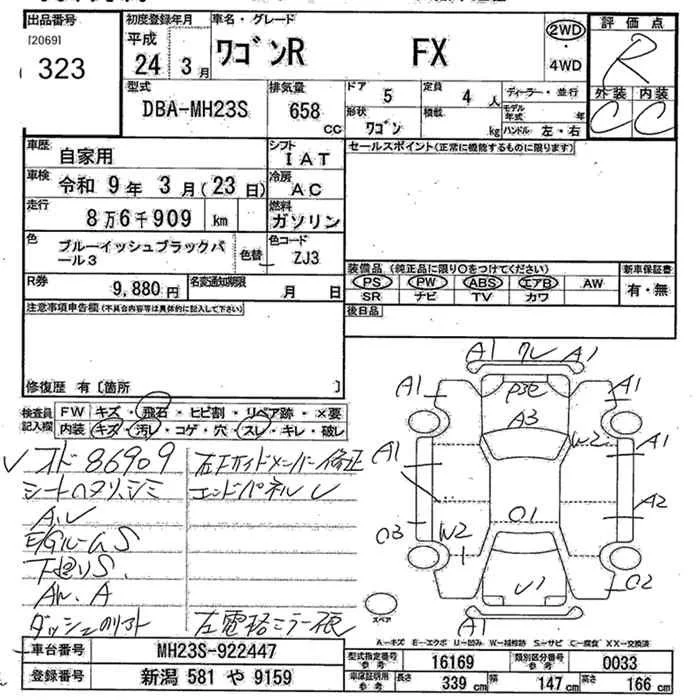 出品番号
[2069]
323
初度登録年月
平成
24 3月
車名・グレード
ワゴンR FX
2WD
・
4WD
評価点
R
外装 内装
C C
型式
DBA-MH23S
排気量
658
CC
ドア
5
定員
4 人
形状
ワゴン
積載
kg
ディーラー・並行
モデル年式 年
ハンドル 左・右
車歴
自家用
シフト
IAT
車検
令和 9年 3月(23日)
冷房
AC
走行
8万6千909 km
燃料
ガソリン
色
ブルーイッシュブラックパール3
色替
色コード
ZJ3
R券
9,880円
名変通知期限
月 日
注意事項申告欄(不具合内容等は具体的に記入して下さい)
修復歴 有〔箇所 〕
セールスポイント(正常に機能するものに限ります)
装備品(純正品に限り○をつけてください)
PS PW ABS エアB AW
SR ナビ TV カワ
新車保証書
有・無
後日品
検査員記入欄
FW キズ・飛石・ヒビ割・リペア跡・×要
内装 キズ・汚レ・コゲ・穴・スレ・キレ・破レ
86909
左Fサイドメンバー修正
エンドパネル
下廻りS
左電格ミラー
A1 A1
A1 A1
A3
A1 W2 A1
A2
O1
W2
U1
A1
スペア
A-キズ E-エクボ U-凹み W-補修跡 S-サビ C-腐食 XX-交換済
車台番号
MH23S-922447
登録番号
新潟 581 や 9159
型式指定番号
参考
16169
類別区分番号
参考
0033
車庫証明用
参考
長さ 339 cm
幅 147 cm
高さ 166 cm